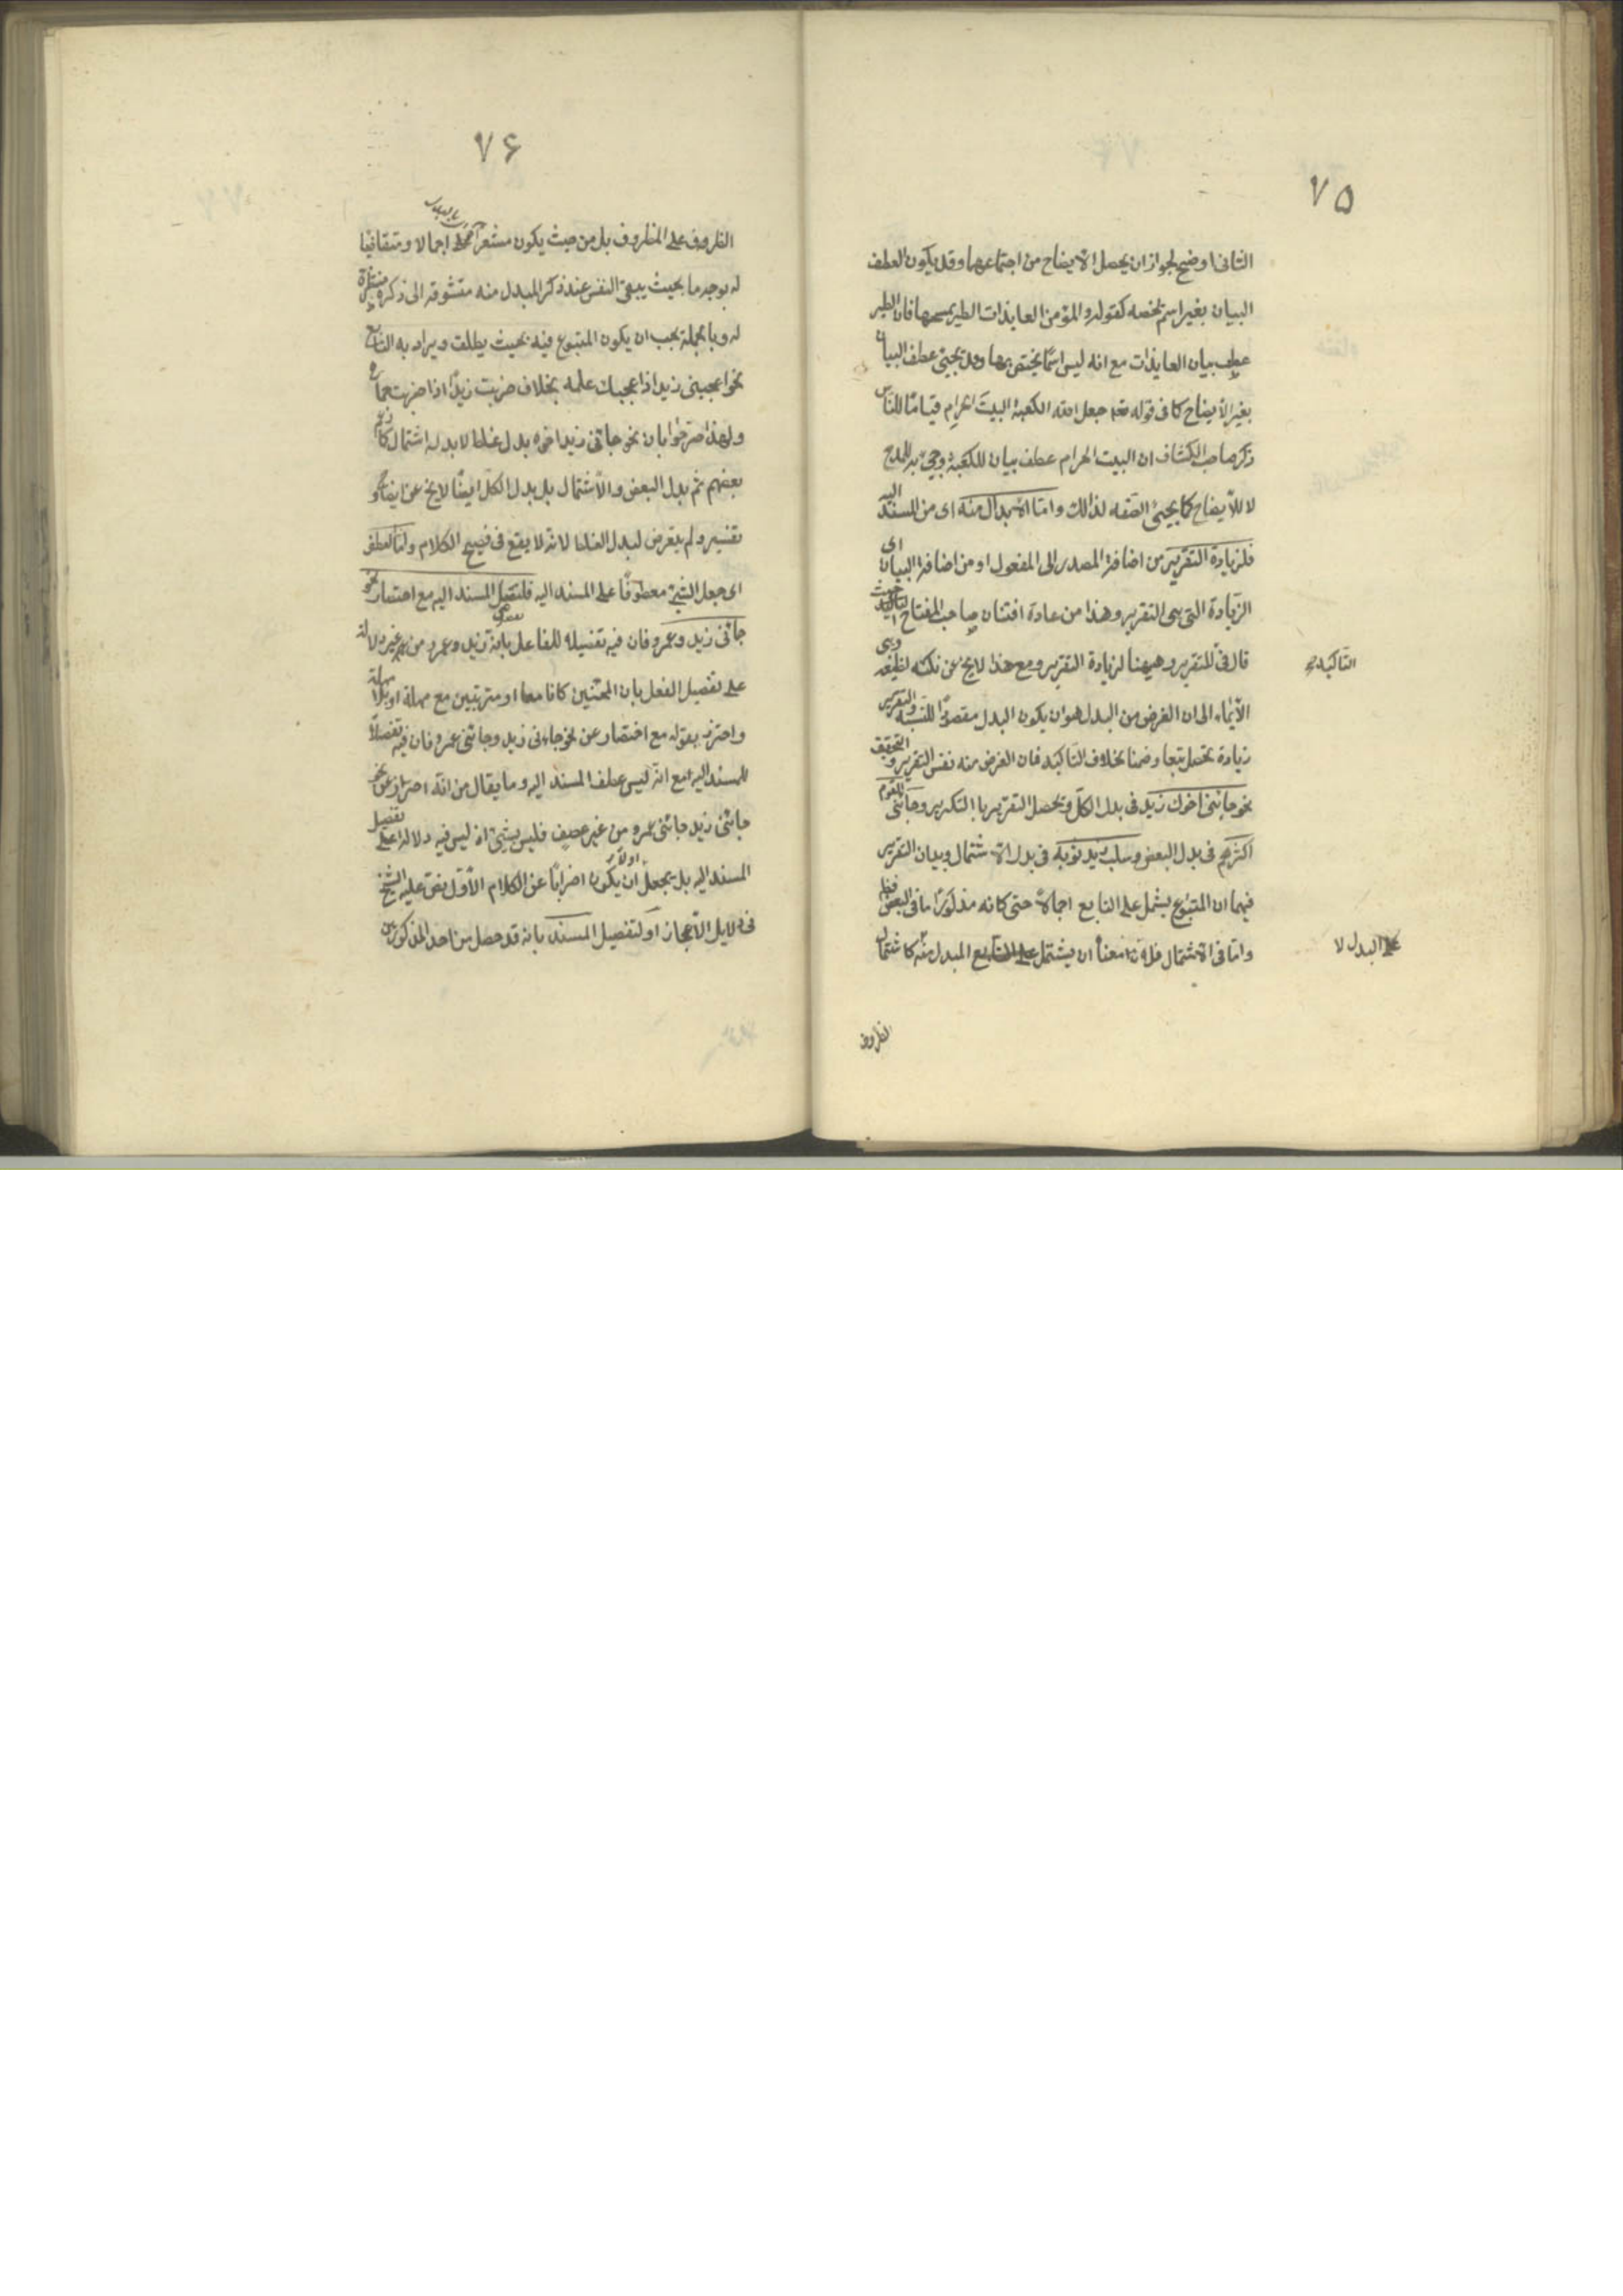 ٧٥
الثانى اوضح لجواز ان يحصل الايضاح من اجتماعهما وقد يكون العطف
البيان بغير اسم يخصه كقوله والمؤمن العايذات الطير يمسحها فان الطير
عطف بيان العايذات مع انه ليس اسمًا يختص بها وقد يجيئ عطف البيان
بغير الايضاح كما فى قوله تعم جعل الله الكعبة البيتَ الحرام قيامًا للناس
ذكر صاحب الكشاف ان البيت الحرام عطف بيان للكعبة وجيئ به للمدح
لا للايضاح كما يجيئ الصفه لذالك وامّا الابدال منه اى من المسند اليه
فلزيادة التقرير من اضافة المصدر الى المفعول او من اضافة البيان اى
الزيادة التى هى التقرير وهذا من عادة افتنان صاحب المفتاح حيث
قال فى للتقرير وهيهنا لزيادة التقرير ومع هذا لايخ عن نكته لطيفه وهى
التاكيد
الايماء الى ان الغرض من البدل هو ان يكون البدل مقصودًا للنسبه والتقرير
زيادة تحصل تبعا وضمنا بخلاف التاكيد فان الغرض منه نفس التقرير و التحقق
نحو جائنى اخوك زيد فى بدل الكل ويحصل التقرير با التكرير وجائنى القوم
اكثرهم فى بدل البعض وسلب زيد ثوبه فى بدل الاشتمال وبيان التقرير
فيهما ان المتبوع يشمل على التابع اجمالا حتى كانه مذكورًا ما فى البعض فظ
واما فى الاشتمال فلان معناه ان يشتمل المبدل منه كاشتمال
على البدل لا
الظروف
٧۶
الظروف على المظروف بل من حيث يكون مشعرا اجمالا ومتقاضيا
له بوجه ما بحيث يبقى النفس عند ذكر المبدل منه متشوقه الى ذكره منتظرة
له وبا لجملة يجب ان يكون المتبوع فيه بحيث يطلق ويراد به التابع
نحو اعجبنى زيد اذا اعجبك علمه بخلاف ضربت زيدًا اذا ضربت حماره
ولهذا صرّحوا بان نحو جائنى زيد اخوه بدل غلط لا بدل اشتمال كما زعم
بعضهم ثم بدل البعض والاشتمال بل بدل الكل ايضًا لايخ عن ايضاح و
تفسير ولم يتعرض لبدل الغلط لانه لا يقع فى فصيح الكلام وامّا العطف
اى جعل الشيئ معطوفًا على المسند اليه فلتفصيل المسند اليه مع اختصار نحو
جائنى زيد وعمرو فان فيه تفصيلا للفاعل بانه زيد وعمرو من غير دلالة
على تفصيل الفعل بان المجيئين كانا معا او مترتبين مع مهلة او بلا مهلة
واحترز بقوله مع اختصار عن نحو جاءنى زيد وجائنى عمرو فان فيه تفصيلًا
للمسند اليه مع انه ليس عطف المسند اليه وما يقال من انّه احتراز عن نحو
جائنى زيد جائنى عمرو من غير عطف فليس بشيئ اذ ليس فيه دلالة على تفصيل
المسند اليه بل يجعل ان يكون اضرابًا عن الكلام الاول نص عليه الشيخ
فى دلايل الاعجاز او لتفصيل المسند بانه قد حصل من احد المذكورين